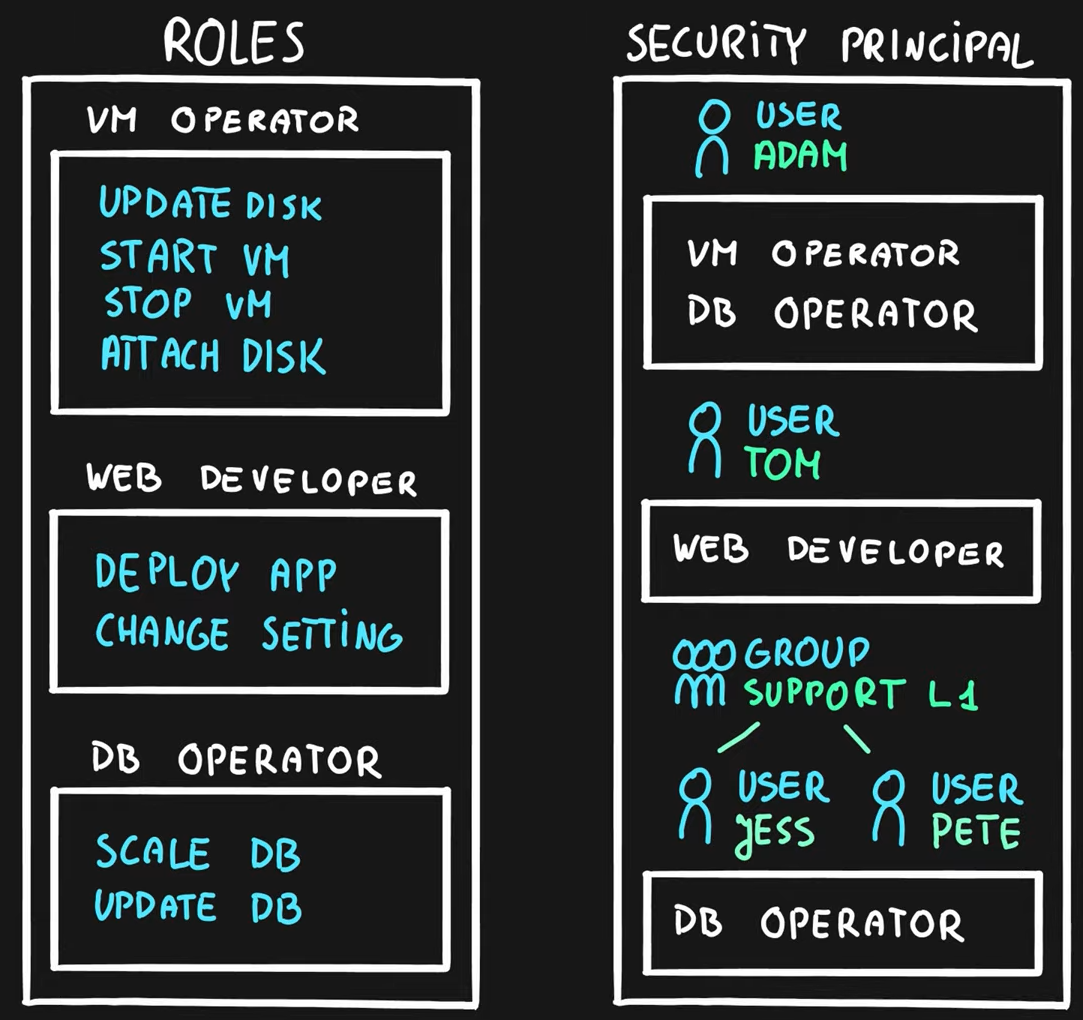 ROLES
VM OPERATOR
UPDATE DISK
START VM
STOP VM
ATTACH DISK
WEB DEVELOPER
DEPLOY APP
CHANGE SETTING
DB OPERATOR
SCALE DB
UPDATE DB
SECURITY PRINCIPAL
USER
ADAM
VM OPERATOR
DB OPERATOR
USER
TOM
WEB DEVELOPER
GROUP
SUPPORT L1
USER
JESS
USER
PETE
DB OPERATOR